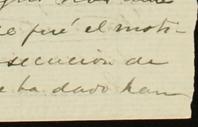 e fué el moti-
secucion de
e ha dado han